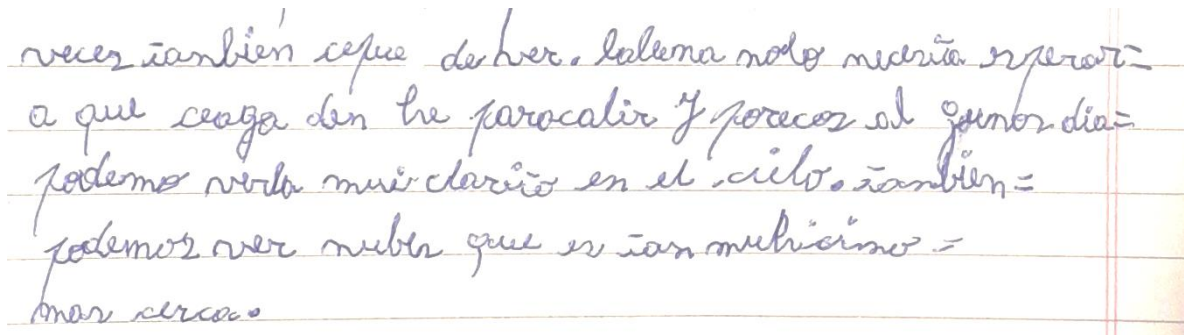 veces tanbién cepue de ver. laluna nolo necesita esperar=
a que ceaga den he paracalir y porecoz el gunos dia=
podemo verla mui clarito en el cielo. tanbien=
podemoz ver nubes que es tan muhicimo=
mas cerca.